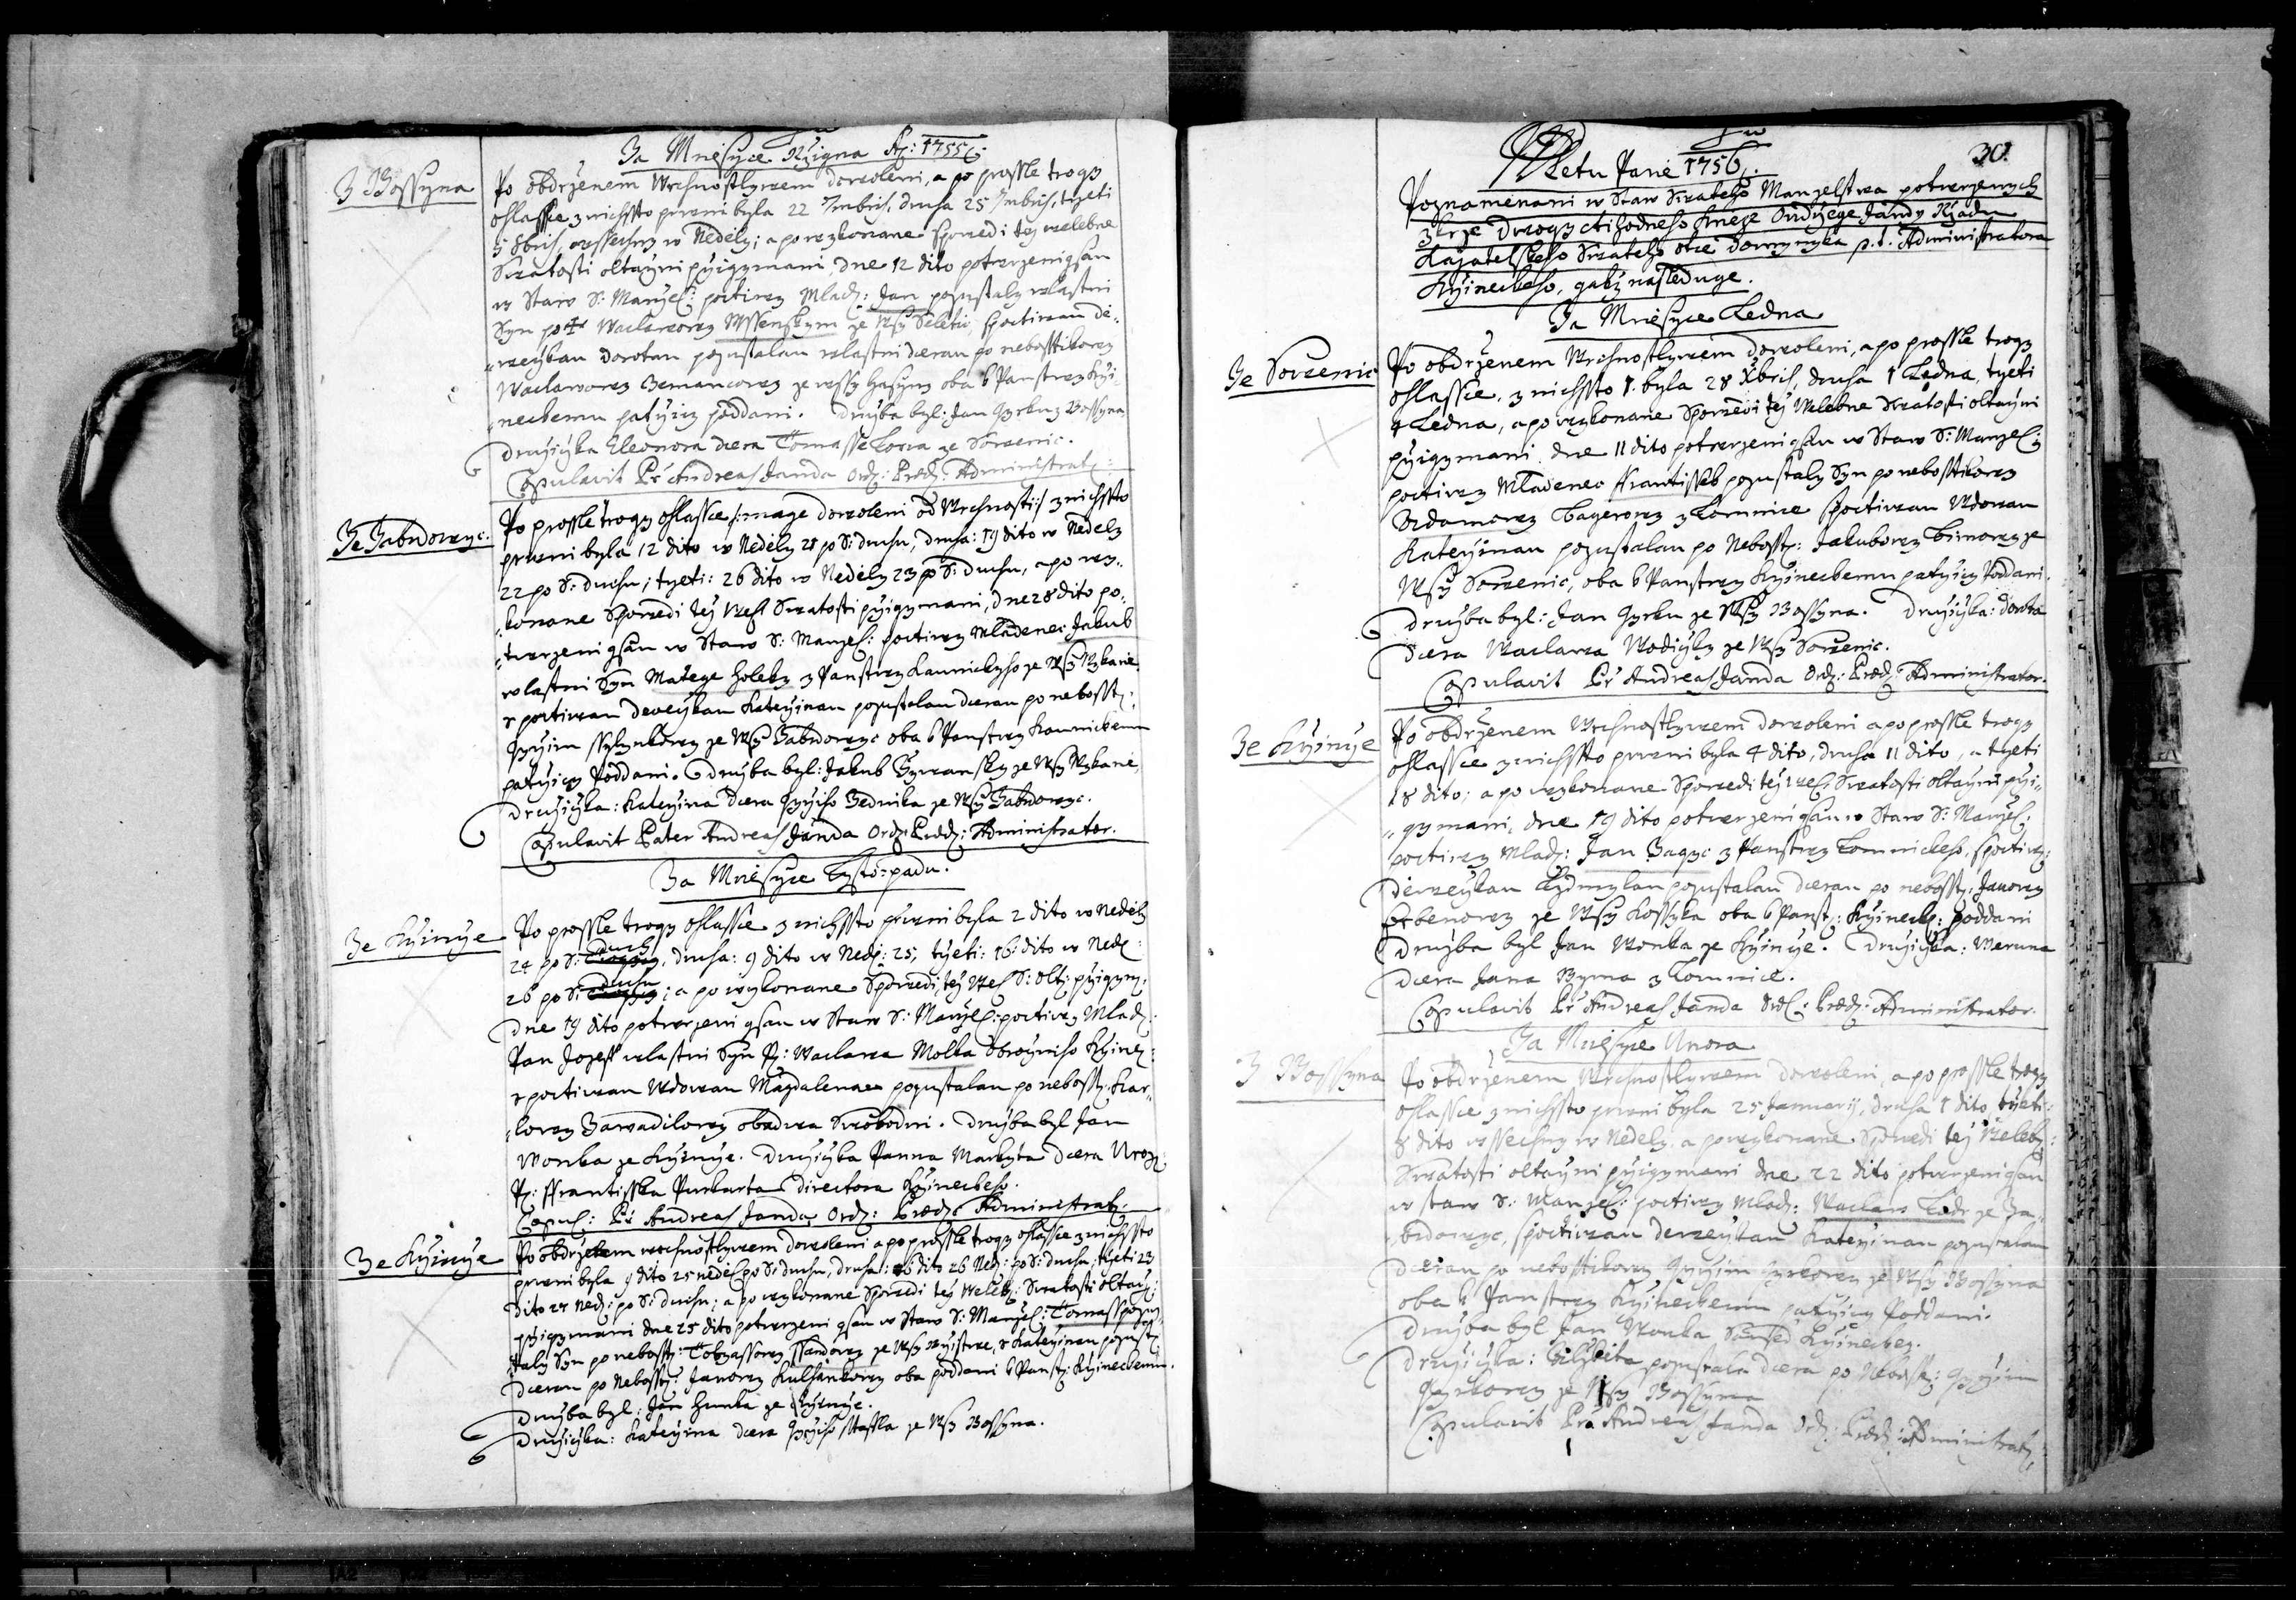 Za Mniesyce Ržigna Ao: 1755
Z Bossyna
Po obdrženem Wrchnostlyweм dowoleni, a po prossle trogy
ohlassce z nichssto prwni byla 22 7mbris, druha 25 7mbris, tržeti
5 8bris, wssechny w Neděly; a po wykonane spowědi tež welebne
Swatosti oltaržni pržigymani, dne 12 dito potwrzeni gsau
w Staw S: Manžel: poctiwy Mlad: Jan pozustaly wlastni
Syn po Waclawowy Wssenskym ze Wsy Seletic, spoctiwau dě-
wečkau Dorotau pozustalau wlastni dcerau po nebosstikowy
Waclawowy Zemanowy ze wsy Hasyny oba k Panstwy Krži-
neckemu patržicy poddani. Družba byl: Jan Gyrku z Bossyna
Družička Eleonora dcera Tomasse ze Sowenic.
Copulavit Pr Andreas Janda Ord: Præd: Administrat:
Ze Zabrdowyc.
Po prossle trogy ohlassce /: mage dowoleni od Wrchnosti :/ z nichssto
prwni byla 12 dito w Neděly 21 po S: duchu, druha: 19 dito w Neděly
22 po S: duchu; tržeti: 26 dito w Neděly 23 po S: duchu, a po wy-
konane spowědi tež Wel: Swatosti pržigymani, dne 28 dito po-
twrzeni gsau w Staw S: Manžel: poctiwy Mladenec Jakub
wlastni Syn Matege Holeky z Panstwy Kaunickyho ze Wsy Wykaně
s poctiwau děwečkau Kateržinau pozustalau dcerau po nebosst:
Gyržim ze Wsy Zabrdowyc oba k Panstwy Kaunickemu
patržicy Poddani. Družba byl: Jakub ze Wsy Wykaně,
Družička: Kateržina dcera Gyržiho Zednika ze Wsy Zabrdowyc.
Copulavit Pater Andreas Janda Ord: Præd: Administrator.
Za Mniesyce Lysto-padu.
Ze Kržinče
Po prossle trogy ohlassce z nichssto prwni byla 2 dito w Neděly
24 po S: duch, druha: 9 dito w Neděl: 25, tržeti: 16: dito w Neděl:
26 po S: duchu; a po wykonane spowědi, tež Wel S: olt: pržigym:
Dne 19 dito potwrzeni gsau w Staw S: Manžel: poctiwy Mlad:
Pan Jozeff wlastni Syn P: Waclawa Molka Kžinec:
s poctiwau Wdowau Magdalenau pozustalau po nebosst: Kar-
lowy Zawadilowy obadwa Swobodni. Družba byl Jan
Wonka ze Kržinče. Družička Panna Markyta dcera Uroz:
P: Frantisska Purkarta Directora Kržineckeho.
Copul: Pr Andreas Janda Ord: Præd: Administrat:
Ze Kržinče
Po obdrženem wrchnostlywem dowoleni a po prossle trogy ohlassce z nichssto
prwni byla 9 dito 25 neděl po S: duchu, druha: 16 dito 26 Neď: po S: duchu, tržeti 23
dito 27 Neď: po S: duchu; a po wykonane spowědi tež Weleb: Swatosti oltarž:
pržigymani dne 25 dito potwrzeni gsau w Staw S: Manžel: Tomass pozus-
taly Syn po nebosst: Tobyassowy ze Wsy Bystrže, s Kateržinau pozust:
dcerau po Nebosst: Janowy Kulhankowy oba poddani k Panst: Kržineckemu.
Družba byl: Jan Hunka ze Kržinče.
Družička: Kateržina dcera Gyržiho ze Wsy Bossyna.
30.
Letu Paně 1756.
Poznamenani w Staw Swateho Manzelstwa potwrzenych
skrze Dwogyctihodneho Kněze Ondržege Jandy Ržadu
Kazatelskeho Swateho otce Domynyka p. t. Administratora
Kržineckeho, gakž nasleduge.
Za Mniesyce Ledna
Ze Sowenic
Po obdrženem Wrchnostlywem dowoleni, a po prossle trogy
ohlassce, z nichssto 1. byla 28 Xbris, druha 1 Ledna, tržeti
4 Ledna, a po wykonane Spowědi tež Welebne Swatosti oltaržni
pržigymani, dne 11 dito potwrzeni gsau w Staw S: Manžel:
poctiwy Mladenec Frantissek pozustaly Syn po nebosstikowy
Adamowy Bagerowy z Lomnice spoctiwau Wdowau
Kateržinau pozustalau po Nebosst: Jakubowy ze
Wsy Sowenic, oba k Panstwy Kržineckemu patržicy Poddani.
Družba byl: Jan Gyrku ze Wsy Bossyna. Družička: Dorota
dcera Waclawa Wodičky ze Wsy Sowenic.
Copulavit Pr Andreas Janda Ord: Præd: Administrator.
Ze Kržinče
Po obdrženem Wrchnostlywem dowoleni a po prossle trogy
ohlassce z nichssto prwni byla 4 dito, druha 11 dito, a tržeti
18 dito; a po wykonane Spowědi tež wel: Swatosti oltaržni prži-
gymani, dne 19 dito potwrzeni gsau w Staw S: Manžel:
poctiwy Mlad: Jan Zagyc z Panstwy Lomnickeho, spoctiwau
děwečkau Lydmylau pozustalau dcerau po nebosst: Janowy
ze Wsy Kossyka oba k Panst: Kržineck: poddani
Družba byl Jan Wonka ze Kržinče. Družička: Weruna
dcera Jana Ryma z Lomnice.
Copulavit Pr Andreas Janda Ord: Præd: Administrator.
Za Mniesyce Unora
Z Bossyna
Po obdrženem Wrchnostlywem dowoleni, a po prossle trogy
ohlassce z nichssto prwni byla 25 Januarij, druha 1 dito, tržeti:
8 dito wssechny w Neděly, a po wykonane Spowědi tež Weleb:
Swatosti oltaržni pržigymani dne 22 dito potwrzeni gsau
w staw S: Manžel: poctiwy Mlad: Waclaw ze Za-
brdowyc, spoctiwau děwečkau Kateržinau pozustalau
dcerau po nebosstikowy Gyržim Gyrkowy ze Wsy Bossyna
oba k Panstwy Kržineckemu patržicy Poddani.
Družba byl Jan Wonka Saused Kržineckey.
Družička: Alžběta pozustala dcera po Nebosst: Gyržim
Gyrkowy ze Wsy Bossyna
Copulavit Pr Andreas Janda Ord: Præd: Administrat: